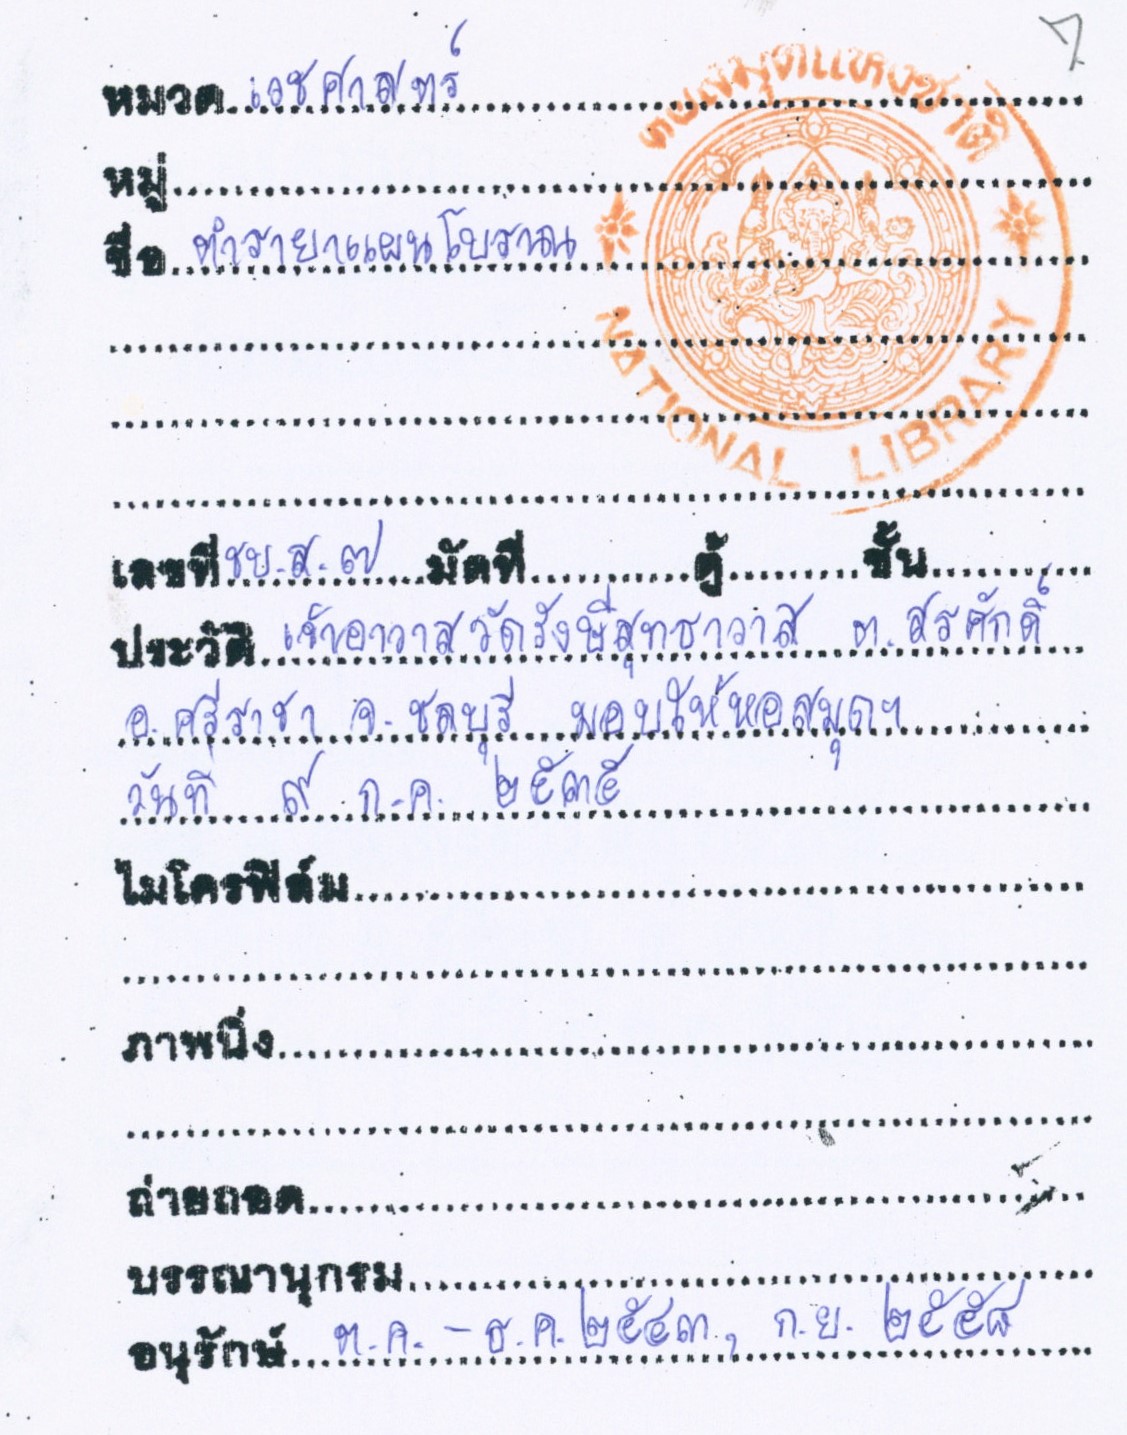 7
หอสมุดแห่งชาติ
NATIONAL LIBRARY
หมวด เวชศาสตร์
หมู่
ชื่อ ตำรายาแผนโบราณ
เลขที่ ชบ.ส.๗ มัดที่ ตู้ ชั้น
ประวัติ เจ้าอาวาสวัดรังษีสุทธาวาส ต.สุรศักดิ์
อ.ศรีราชา จ.ชลบุรี มอบให้หอสมุดฯ
วันที่ ๙ ก.ค. ๒๕๓๕
ไมโครฟิล์ม
ภาพนิ่ง
ถ่ายถอด
บรรณานุกรม
อนุรักษ์ ต.ค. - ธ.ค. ๒๕๔๓, ก.ย. ๒๕๕๘